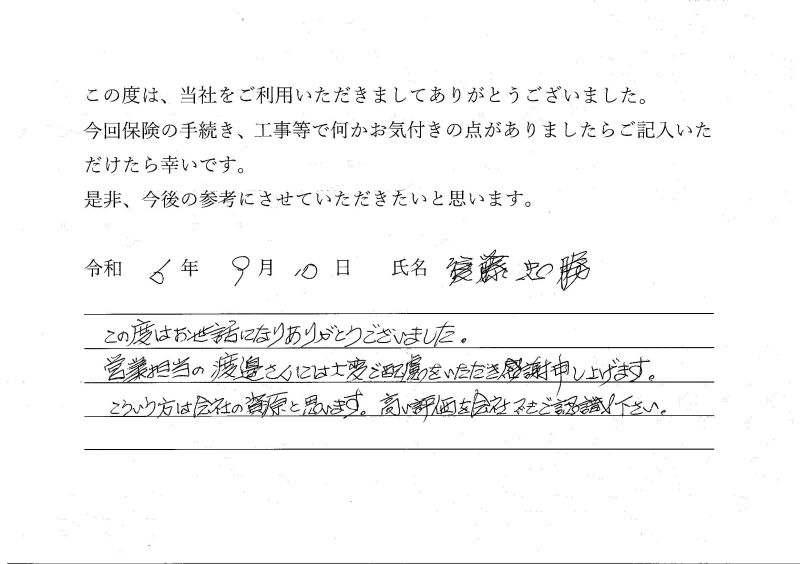 この度は、当社をご利用いただきましてありがとうございました。
今回保険の手続き、工事等で何かお気付きの点がありましたらご記入いた
だけたら幸いです。
是非、今後の参考にさせていただきたいと思います。
令和 6 年 9 月 10 日 氏名 後藤 忠勝
この度はお世話になりありがとうございました。
営業担当の渡邊さんには大変ご配慮をいただき感謝申し上げます。
こういう方は会社の資源と思います。高い評価を会社でもご認識下さい。